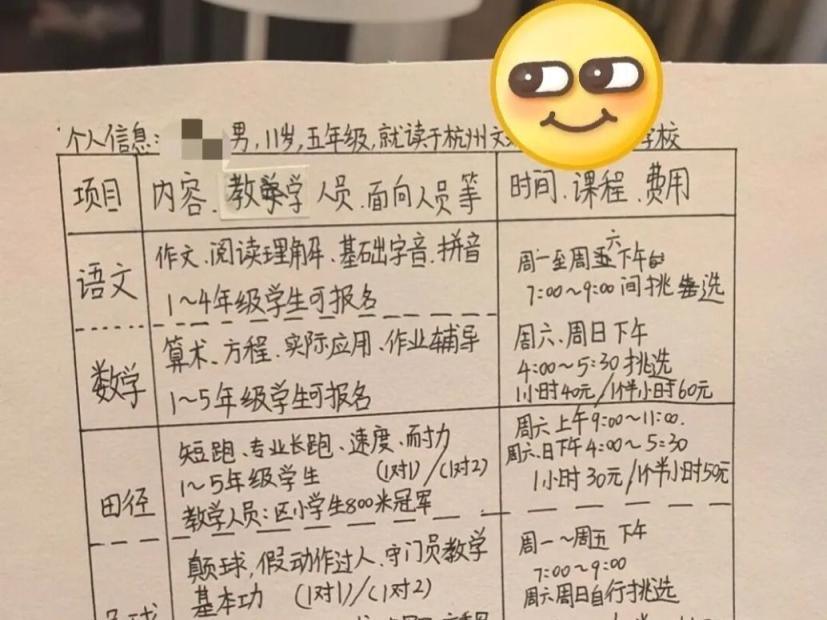 个人信息: 男,11岁,五年级,就读于杭州文 学校
项目 内容、教学 人员、面向人员等 时间、课程、费用
语文
作文、阅读理解、基础字音、拼音
1~4年级学生可报名
周一至周六下午
7:00~9:00间挑选
数学
算术、方程、实际应用、作业辅导
1~5年级学生可报名
周六、周日下午
4:00~5:30挑选
1小时40元/1个半小时60元
田径
短跑、专业长跑、速度、耐力
1~5年级学生 (1对1)/(1对2)
教学人员:区小学生800米冠军
周六上午9:00~11:00.
周六、日下午4:00~5:30
1小时30元/1个半小时50元
颠球,假动作过人、守门员教学
基本功 (1对1)/(1对2)
周一~周五下午
7:00~9:00
周六周日自行挑选